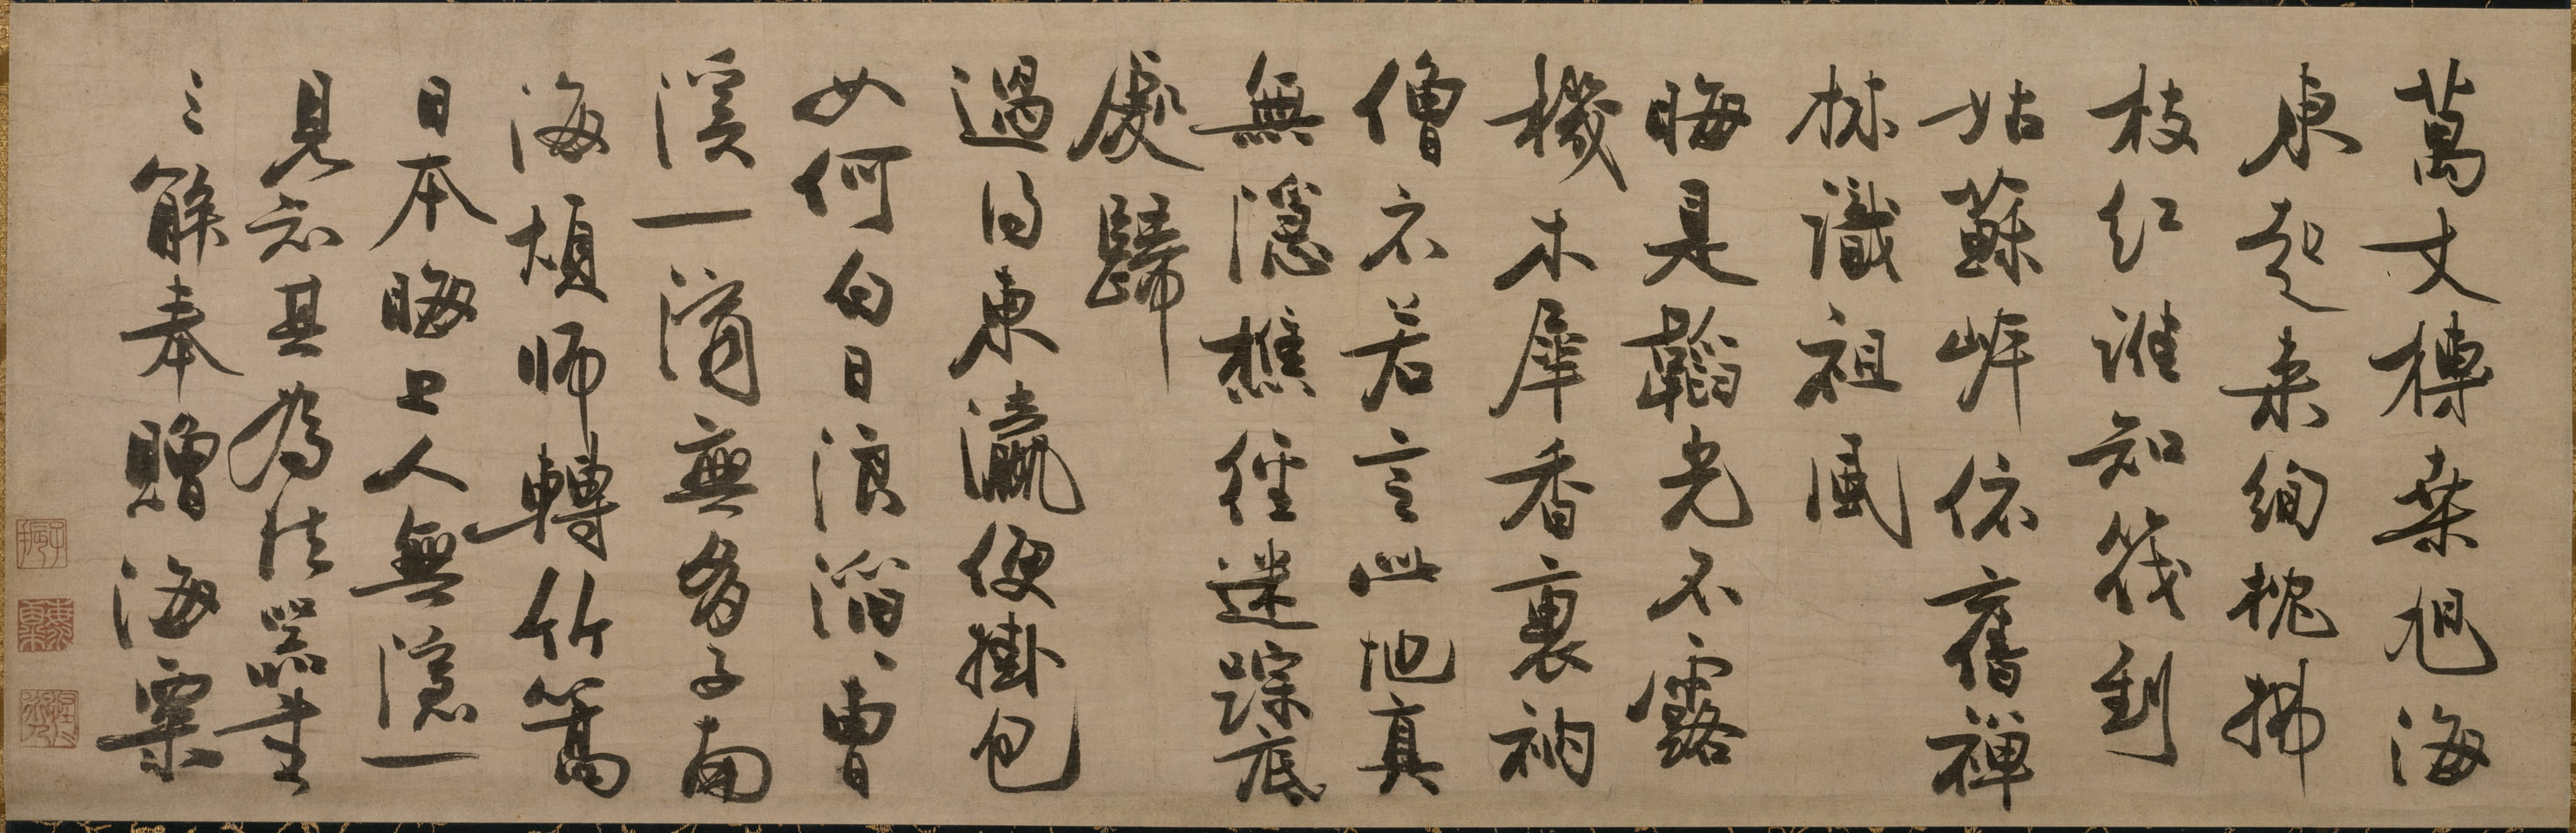 萬丈榑桑旭海
東起來絢桅拂
枝紅誰知筏到
姑蘇岸依舊禪
林識祖風
晦是韜光不露
機木犀香裏衲
僧衣若言此地真
無隱樵徑迷蹤底
處歸
過得東瀛便掛包
如何白日浪滔〻曹
溪一滴無多子南
海煩師轉竹篙
日本晦上人無隱一
見知其為法器書
三解奉贈海粟